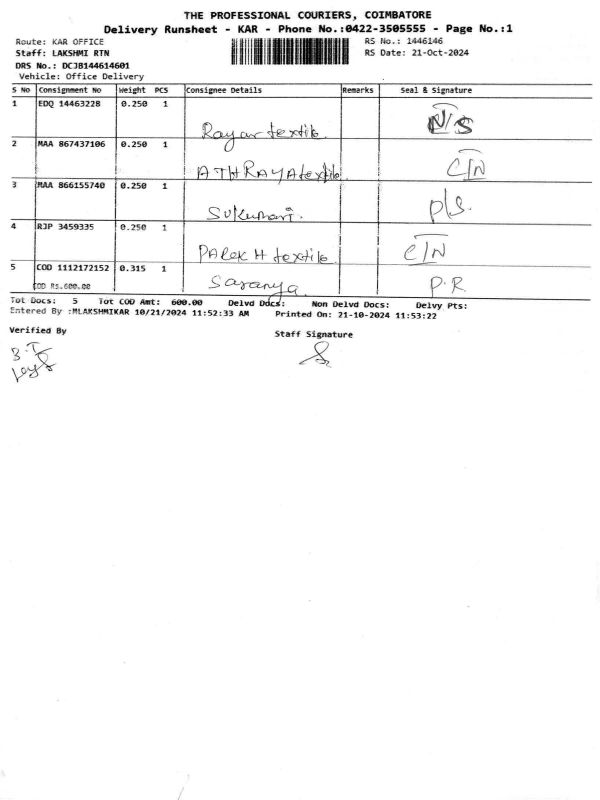 THE PROFESSIONAL COURIERS, COIMBATORE
Delivery Runsheet - KAR - Phone No.:0422-3505555 - Page No.:1
Route: KAR OFFICE RS No.: 1446146
Staff: LAKSHMI RTN RS Date: 21-Oct-2024
DRS No.: DCJB144614601
Vehicle: Office Delivery
S No Consignment No Weight PCS Consignee Details Remarks Seal & Signature
1 EDQ 14463228 0.250 1
Rayar textile. N/S
2 MAA 867437106 0.250 1
ATHRAYA textile. C/N
3 MAA 866155740 0.250 1
SUKumari. P/S.
4 RJP 3459335 0.250 1
PAREKH textile C/N
5 COD 1112172152 0.315 1
Saranya P.R
COD Rs.600.00
Tot Docs: 5 Tot COD Amt: 600.00 Delvd Docs: Non Delvd Docs: Delvy Pts:
Entered By :MLAKSHMIKAR 10/21/2024 11:52:33 AM Printed On: 21-10-2024 11:53:22
Verified By Staff Signature